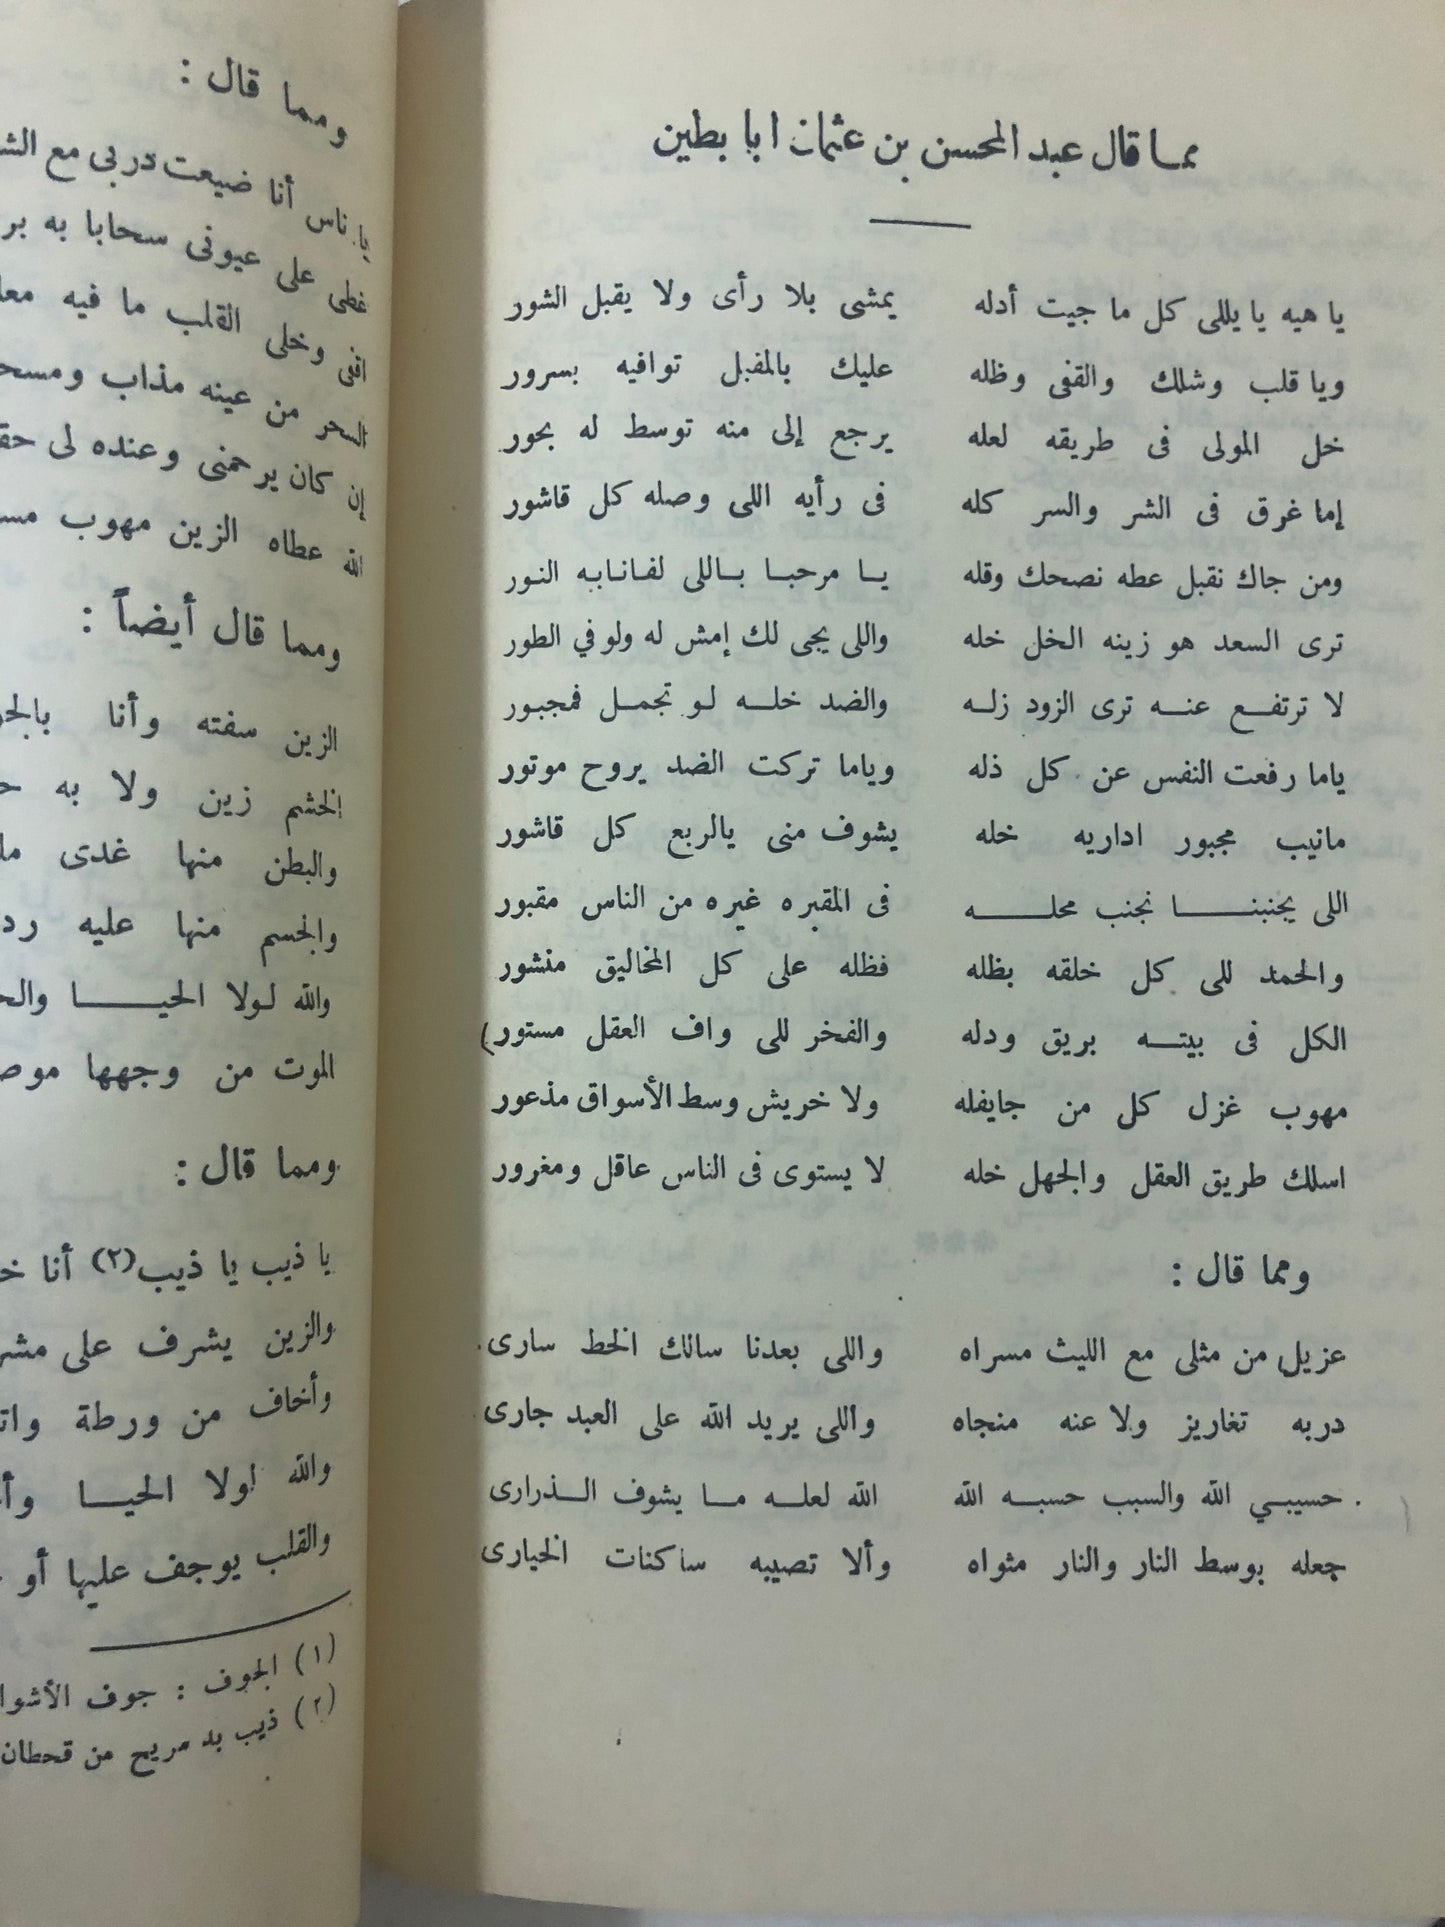 مما قال عبد المحسن بن عثمان ابا بطين
يا هيه يا يللى كل ما جيت أدله يمشى بلا رأى ولا يقبل الشور
ويا قلب وشلك والقفى وظله عليك بالمقبل توافيه بسرور
خل المولى فى طريقه لعله يرجع إلى منه توسط له بحور
إما غرق فى الشر والسر كله فى رأيه اللى وصله كل قاشور
ومن جاك نقبل عطه نصحك وقله يا مرحبا باللى لفانابه النور
ترى السعد هو زينه الخل خله واللى يجى لك إمش له ولو في الطور
لا ترتفع عنه ترى الزود زله والضد خله لو تجمل فمجبور
ياما رفعت النفس عن كل ذله وياما تركت الضد يروح موتور
مانيب مجبور اداريه خله يشوف منى يالربع كل قاشور
اللى يجنبنا نجنب محله فى المقبره غيره من الناس مقبور
والحمد للى كل خلقه بظله فظله على كل المخاليق منشور
الكل فى بيته بريق ودله والفخر للى واف العقل مستور)
مهوب غزل كل من جايفله ولا خريش وسط الأسواق مذعور
اسلك طريق العقل والجهل خله لا يستوى فى الناس عاقل ومغرور
ومما قال :
عزيل من مثلى مع الليث مسراه واللى بعدنا سالك الخط سارى
دربه تغاريز ولا عنه منجاه واللى يريد الله على العبد جارى
حسيبي الله والسبب حسبه الله الله لعله ما يشوف الذرارى
جعله بوسط النار والنار مثواه وألا تصيبه ساكنات الخيارى
ومما قال :
يا ناس أنا ضيعت دربى مع
غطى على عيونى سحابا به
اقفى وخلى القلب ما فيه
السحر من عينه مذاب
إن كان يرحمنى وعنده لى
الله عطاه الزين مهوب
ومما قال أيضاً :
الزين سفته وأنا
الخشم زين ولا به
والبطن منها غدى
والجسم منها عليه
والله لولا الحيا
الموت من وجهها
ومما قال :
يا ذيب يا ذيب(٢) أنا
والزين يشرف على
وأخاف من ورطة
والله لولا الحيا
والقلب يوجف عليها أو
(١) الجوف : جوف
(٢) ذيب بد مريح من قحطان